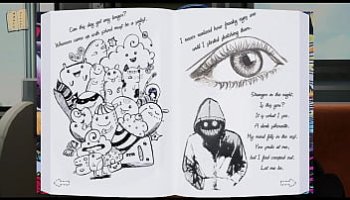 Can this day get any longer?
Whoever came up with school must be a
I never realized how freaky eyes are
until I started sketching them.
Stranger in the night,
Is it you?
It is what I see.
A dark silhouette.
My mind fills in the rest.
You smile at me,
but I feel creeped out.
Let me be.